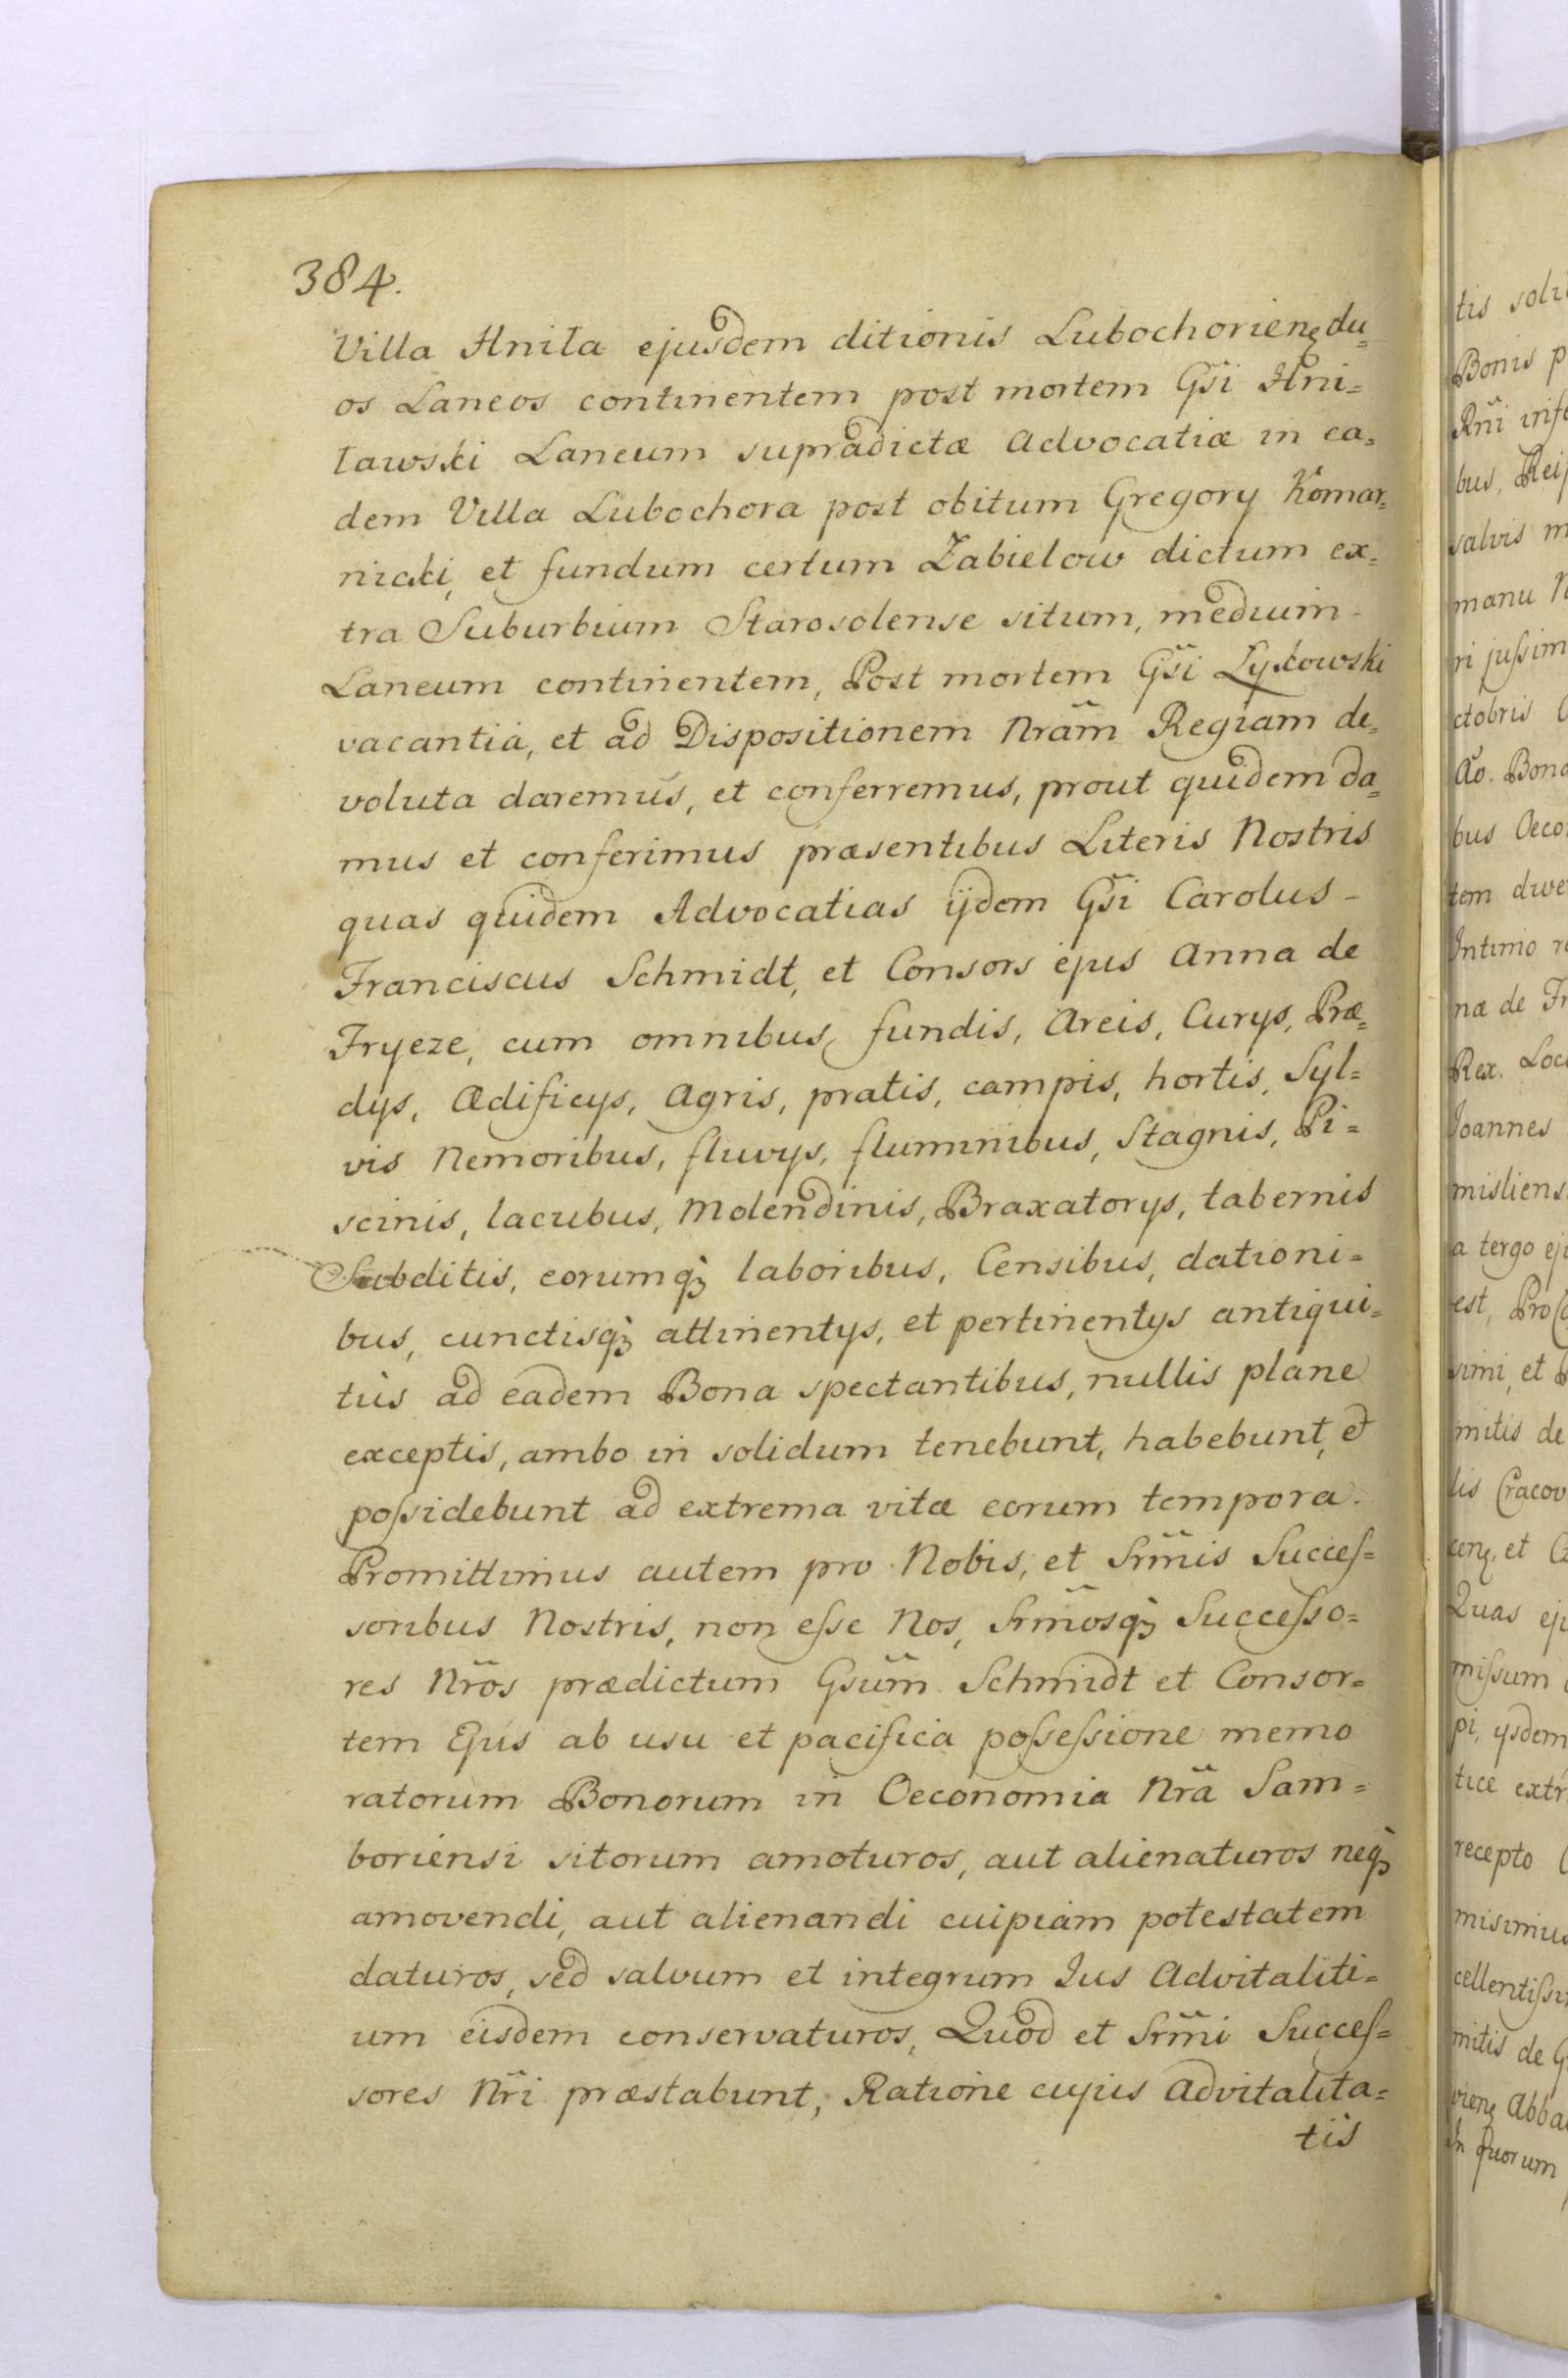 384.
Villa Hniła ejusdem ditionis Lubochorienȩ du=
os Laneos continentem post mortem Gsi Hni=
ławski Laneum supradictæ Advocatiæ in ea=
dem Villa Lubochora post obitum Gregory Komar=
nicki, et fundum certum Zabielow dictum ex=
tra Suburbium Starosolense situm, medium
Laneum continentem, Post mortem Gsi Łyskowski
vacantia, et ad Dispositionem Nram Regiam de=
voluta daremus, et conferremus, prout quidem da=
mus et conferimus præsentibus Literis Nostris
quas quidem Advocatias ijdem Gsi Carolus -
Franciscus Schmidt, et Consors ejus Anna de
Fryeze, cum omnibus fundis, Areis, Curys, Præ=
dys, Ædificys, Agris, pratis, campis, hortis, Syl=
vis Nemoribus, fluvys, fluminibus, Stagnis, Pi=
scinis, lacubus, Molendinis, Braxatorys, tabernis
Subditis, eorumq; laboribus, Censibus, dationi=
bus, cunctisq; attinentys, et pertinentys antiqui=
tus ad eadem Bona spectantibus, nullis plane
exceptis, ambo in solidum tenebunt, habebunt, et
poſsidebunt ad extrema vitæ eorum tempora.
Promittimus autem pro Nobis, et Srmis Succeſ=
soribus Nostris, non eſse Nos, Srmosq; Succeſso=
res Nros prædictum Gsum Schmidt et Consor=
tem Ejus ab usu et pacifica poſseſsione memo
ratorum Bonorum in Oeconomia Nra Sam=
boriensi sitorum amoturos, aut alienaturos neq;
amovendi, aut alienandi cuipiam potestatem
daturos, sed salvum et integrum Jus Advitaliti=
um eisdem conservaturos, Quod et Srmi Succeſ=
sores Nri præstabunt, Ratione cujus Advitalita=
tis
tis
Bonis
bus,
salvis
manu
ctobris
Ao.
bus
Intimo
næ de
Rex.
Joannes
a tergo
est,
et
mitis de
Quas
miſsum
pi, ysdem
recepto
mitis de
In quorum